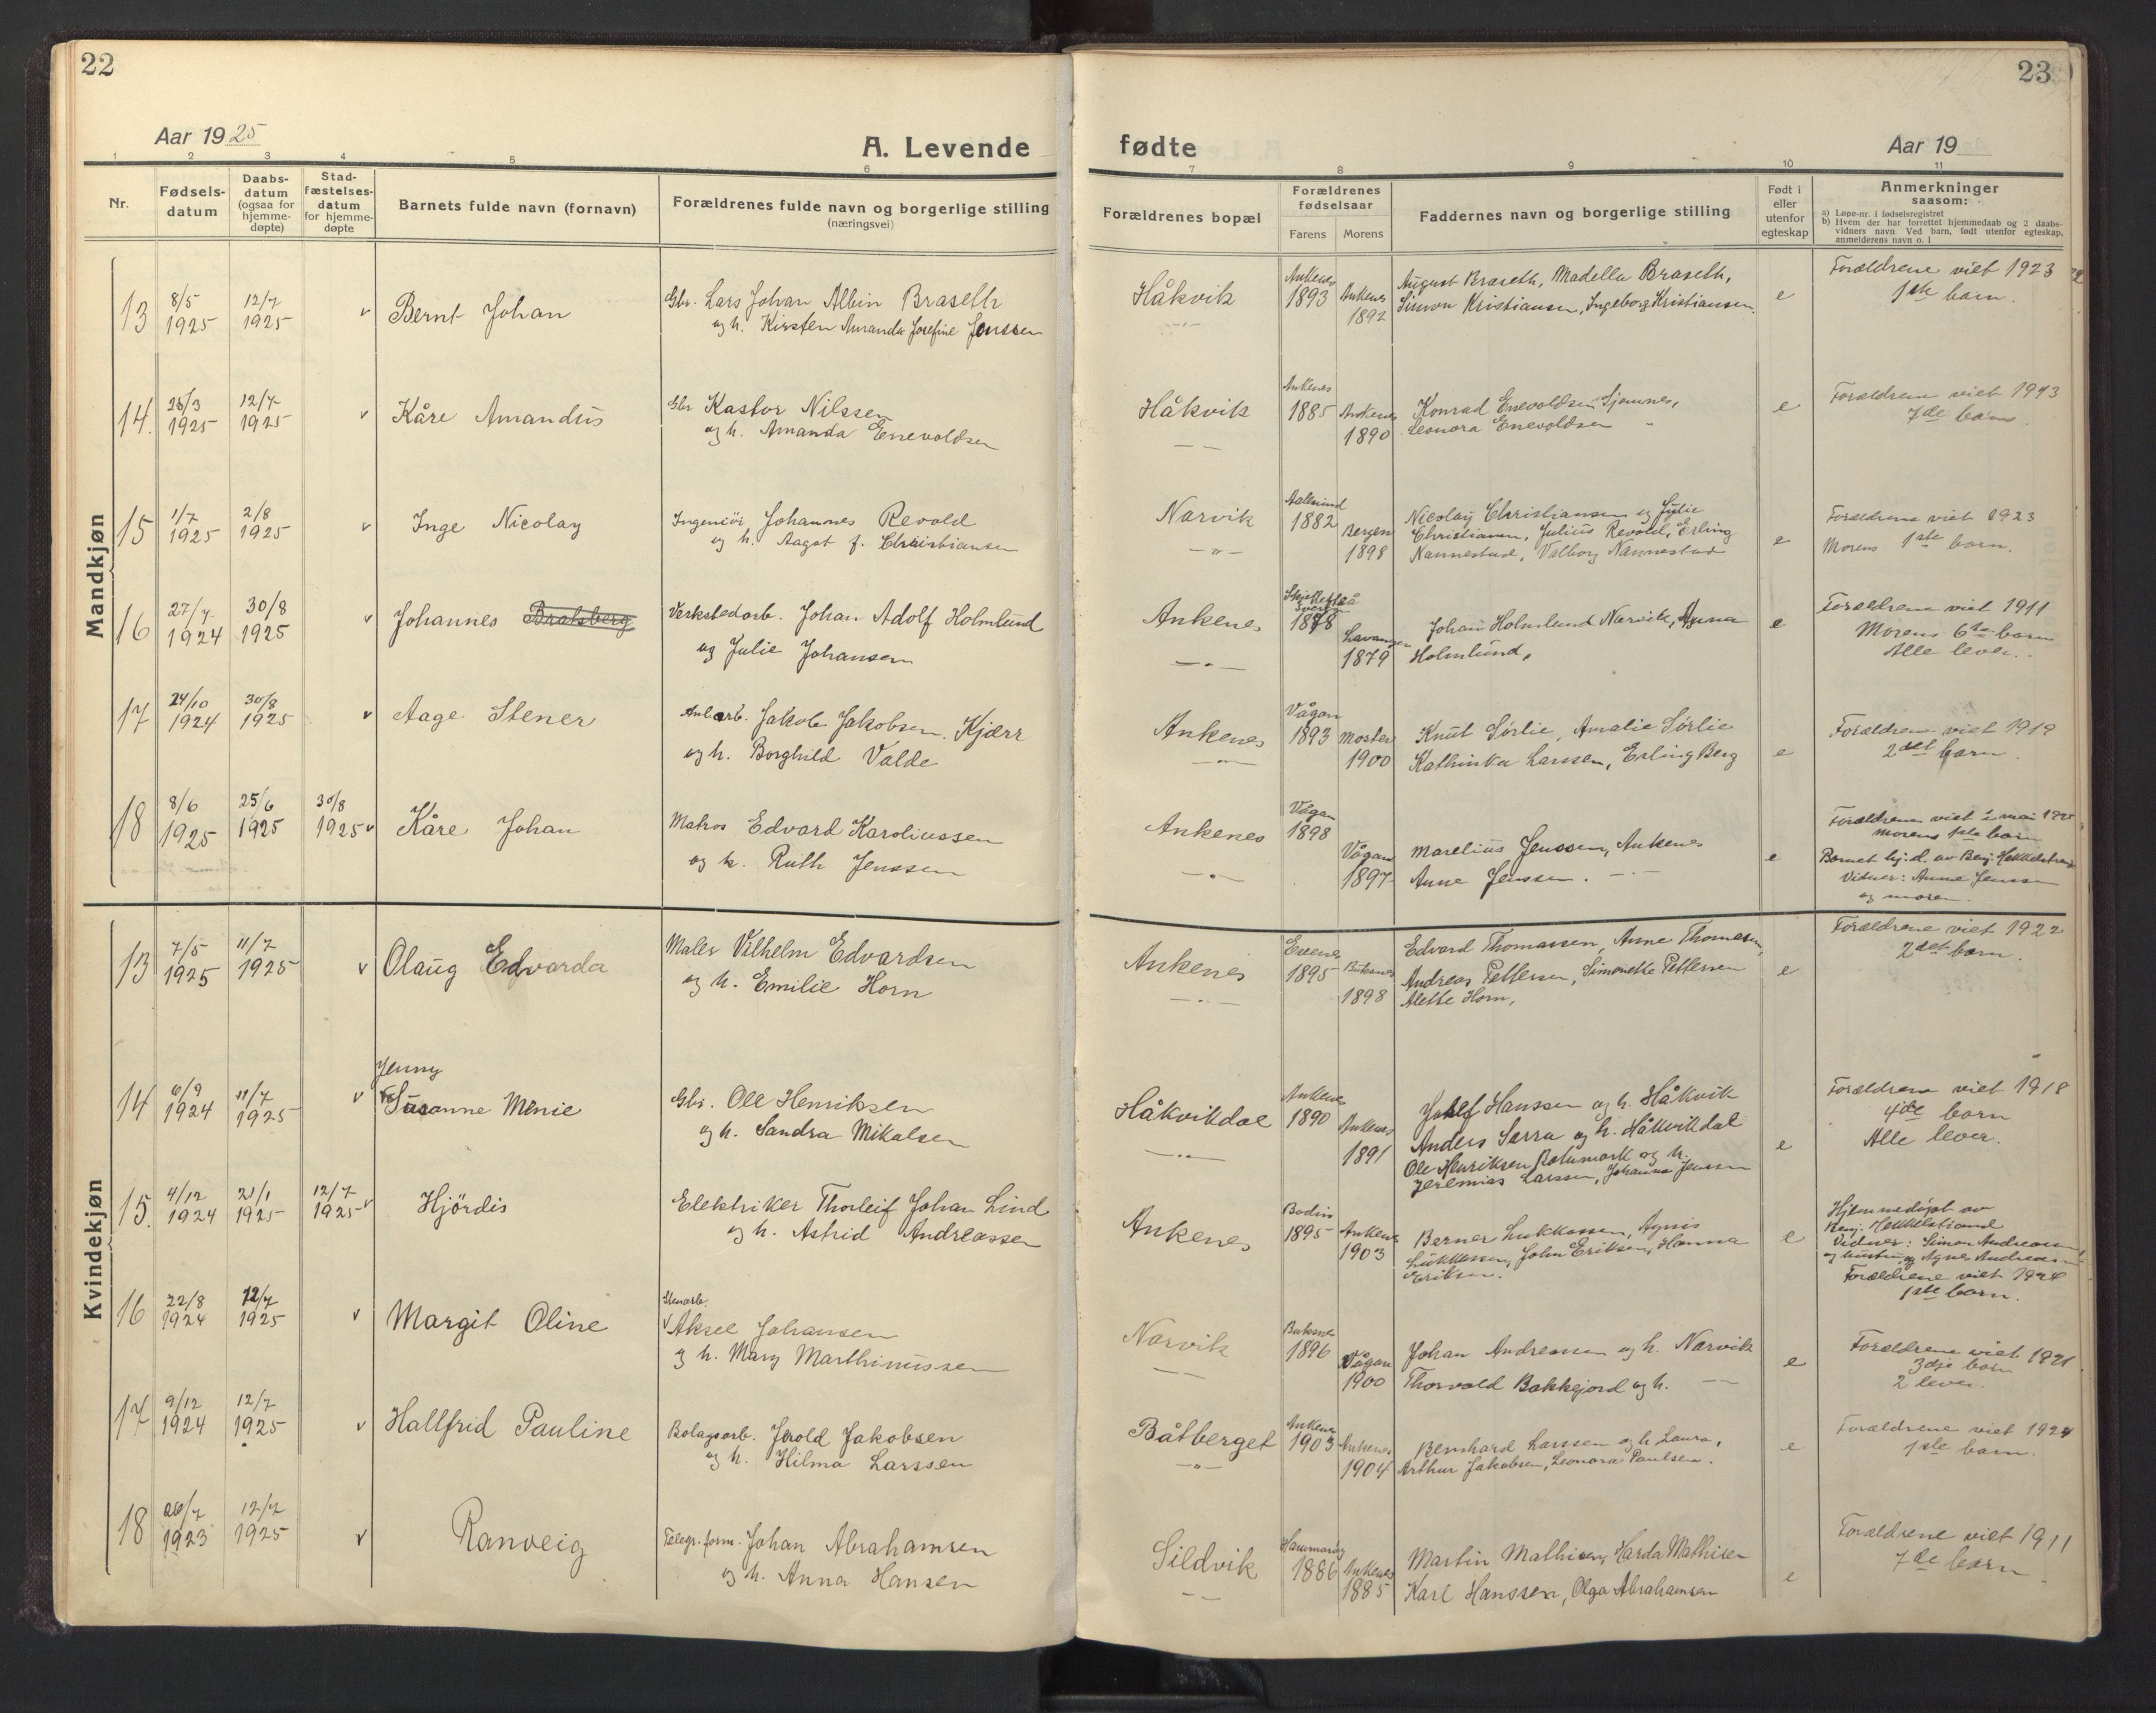 22
Aar 1925
A. Levende
1 2 3 4 5 6
Nr.
Fødsels-
datum
Daabs-
datum
(ogsaa for
hjemme-
døpte)
Stad-
fæstelses-
datum
for hjemme-
døpte
Barnets fulde navn (fornavn)
Forældrenes fulde navn og borgerlige stilling
(næringsvei)
Mandkjøn
13 8/5 1925 12/7 1925 v Bernt Johan
Gbr. Lars Johan Albin Braseth
og h. Kirsten Amanda Josefine Jenssen
14. 28/3 1925 12/7 1925 v Kåre Amandus
Gbr Kastor Nilssen
og h. Amanda Enevoldsen
15 1/7 1925 2/8 1925 v Inge Nicolay
Ingeniör Johannes Revold
og h. Aagot f. Christiansen
16 27/7 1924 30/8 1925 v Johannes Bratsberg
Verkstedarb. Johan Adolf Holmlund
og Julie Johansen
17 24/10 1924 30/8 1925 v Aage Stener
Anl.arb. Jakob Jakobsen Kjærr
og h. Borghild Valde
18 8/6 1925 25/6 1925 30/8 1925 v Kåre Johan
Matros Edvard Karoliussen
og h. Ruth Jenssen
Kvindekjøn
13 7/5 1925 11/7 1925 v Olaug Edvarda
Maler Vilhelm Edvardsen
og h. Emilie Horn
Jenny
14 6/9 1924 11/7 1925 v Susanne Menie
Gbr. Ole Henriksen
og h. Sandra Mikalsen
15. 4/12 1924 21/1 1925 12/7 1925 v Hjördis
Elektriker Thorleif Johan Lind
og h. Astrid Andreassen
16 22/8 1924 12/7 1925 v Margit Oline
Stenarb.
v Aksel Johansen
og h. Mary Marthinussen
17 9/12 1924 12/7 1925 v Hallfrid Pauline
Bolagsarb. Jerold Jakobsen
og h. Hilma Larssen
18 26/7 1923 12/7 1925 v Ranveig
Telegr. form. Johan Abrahamsen
og h. Anna Hansen
23
fødte
Aar 19
7 8 9 10 11
Forældrenes bopæl
Forældrenes
fødselsaar
Farens Morens
Faddernes navn og borgerlige stilling
Født i
eller
utenfor
egteskap
Anmerkninger
saasom:
a) Løpe-nr. i fødselsregistret
b) Hvem der har forrettet hjemmedaab og 2 daabs-
vidners navn Ved barn, født utenfor egteskap,
anmelderens navn o. l
Håkvik
Ankenes 1893 Ankenes 1892
August Braseth, Madella Braseth,
Simon Kristiansen, Ingeborg Kristiansen.
e
Forældrene viet 1923
1ste barn.
Håkvik
Ankenes 1885 Ankenes 1890
Konrad Enevoldsen
Leonora Enevoldsen
e
Forældrene viet 1913
7de barn.
Narvik
Aalesund 1882 Bergen 1898
Nicolay Christiansen og Julie
Christiansen, Julius Revold, Erling
Nannestad, Valborg Nannestad
e
Forældrene viet 1923
Morens 1ste barn.
Ankenes
1878 Lavangen 1879
Johan Holmlund Narvik, Anna
Holmlund,
e
Forældrene viet 1911
Morens 6te barn
Alle lever.
Ankenes
Vågan 1893 Moster 1900
Knut Sörlie, Amalie Sörlie
Kathinka Larssen, Erling Berg
e
Forældrene viet 1919
2det barn.
Ankenes
Vågan 1898 Vågan 1897
Marelius Jenssen, Ankenes
Anne Jenssen. — " —
e
Forældrene viet 2 mai 1925
morens 1ste barn
Barnet hj.d. av Benj. Hekkelstrand
Vidner: Anne Jenssen
og moren.
Ankenes
Evenes 1895 Buksnes 1898
Edvard Thomassen, Anne Thomassen,
Andreas Pettersen, Simonette Pettersen
Alette Horn,
e
Forældrene viet 1922
2det barn.
Håkvikdal
Ankenes 1890 Ankenes 1891
Josef Hanssen og h. Håkvik
Anders Sarra og h. Håkvikdal
Ole Henriksen og h.
Jeremias Larssen, Johanna Jenssen
e
Forældrene viet 1918
4de barn
Alle lever.
Ankenes
Bodin 1895 Ankenes 1903
Berner Lukkassen, Agnis
Lukkassen, John Eriksen, Hanna
Eriksen.
e
Hjemmedöpt av
Benj. Hekkelstrand
Vidner: Simon Andreassen
og hustru og Agnes Andreassen
Forældrene viet 1924
1ste barn.
Narvik
Buksnes 1896 Vågan 1900
Johan Andreassen og h. Narvik
Thorvald Bakkejord og h. — —
e
Forældrene viet 1921
3dje barn
2 lever.
Båtberget
Ankenes 1903 Ankenes 1904
Bernhard Larssen og h. Laura,
Arthur Jakobsen, Leonora Paulsen.
e
Forældrene viet 1924
1ste barn.
Sildvik
Hammarøy 1886 Ankenes 1885
Martin Mathisen, Harda Mathisen
Karl Hanssen, Olga Abrahamsen
e
Forældrene viet 1911
7de barn